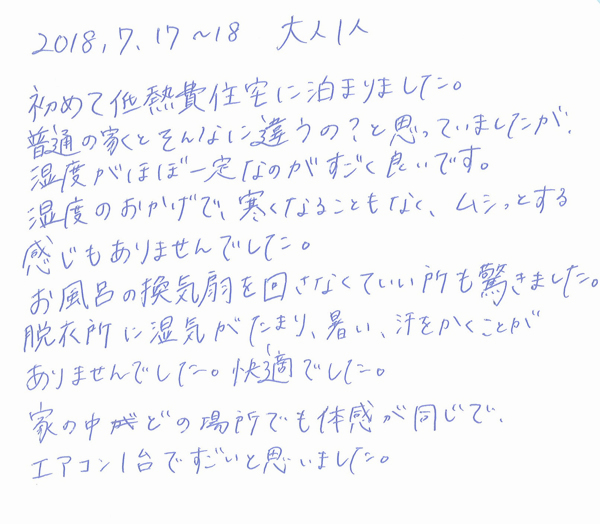 2018.7.17~18 大人1人
初めて低熱費住宅に泊まりました。
普通の家とそんなに違うの?と思っていましたが、
湿度がほぼ一定なのがすごく良いです。
湿度のおかげで、寒くなることもなく、ムシっとする
感じもありませんでした。
お風呂の換気扇を回さなくていい所も驚きました。
脱衣所に湿気がたまり、暑い、汗をかくことが
ありませんでした。快適でした。
家の中がどの場所でも体感が同じで、
エアコン1台ですごいと思いました。